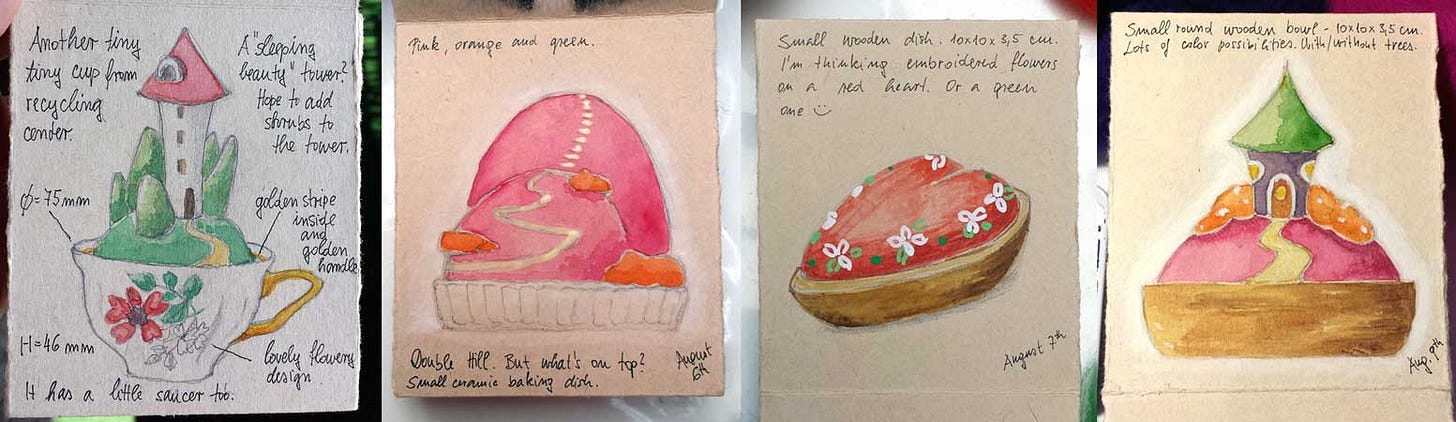 Another tiny
tiny cup from
recycling
center.
A "sleeping
beauty" tower?
Hope to add
shrubs to
the tower.
ϕ=75mm
golden stripe
inside
and
golden
handle
H=46 mm
lovely flowery
design
It has a little saucer too.
Pink, orange and green.
Double Hill. But what's on top?
Small ceramic baking dish.
August
6th
Small wooden dish. 10x10x3,5 cm.
I'm thinking embroidered flowers
on a red heart. Or a green
one ☺
August 7th
Small round wooden bowl - 10x10x3,5 cm.
Lots of color possibilities. With/without trees.
Aug. 9th